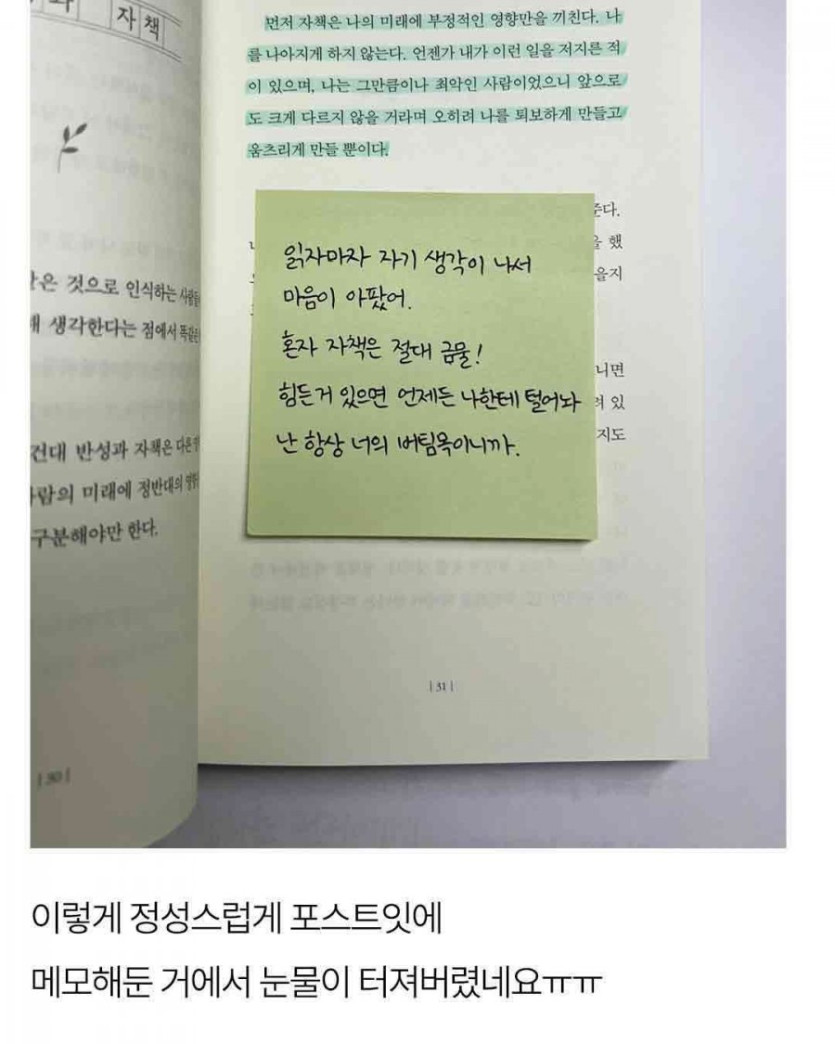 자책
먼저 자책은 나의 미래에 부정적인 영향만을 끼친다. 나
를 나아지게 하지 않는다. 언젠가 내가 이런 일을 저지른 적
이 있으며, 나는 그만큼이나 최악인 사람이었으니 앞으로
도 크게 다르지 않을 거라며 오히려 나를 퇴보하게 만들고
움츠리게 만들 뿐이다.
은 것으로 인식하는 사람들
생각한다는 점에서 똑같은
건대 반성과 자책은 다른
사람의 미래에 정반대의
구분해야만 한다.
| 30 |
준다.
을 했
을지
니면
려 있
지도
읽자마자 자기 생각이 나서
마음이 아팠어.
혼자 자책은 절대 금물!
힘든거 있으면 언제든 나한테 털어놔
난 항상 너의 버팀목이니까.
| 31 |
이렇게 정성스럽게 포스트잇에
메모해둔 거에서 눈물이 터져버렸네요ㅠㅠ